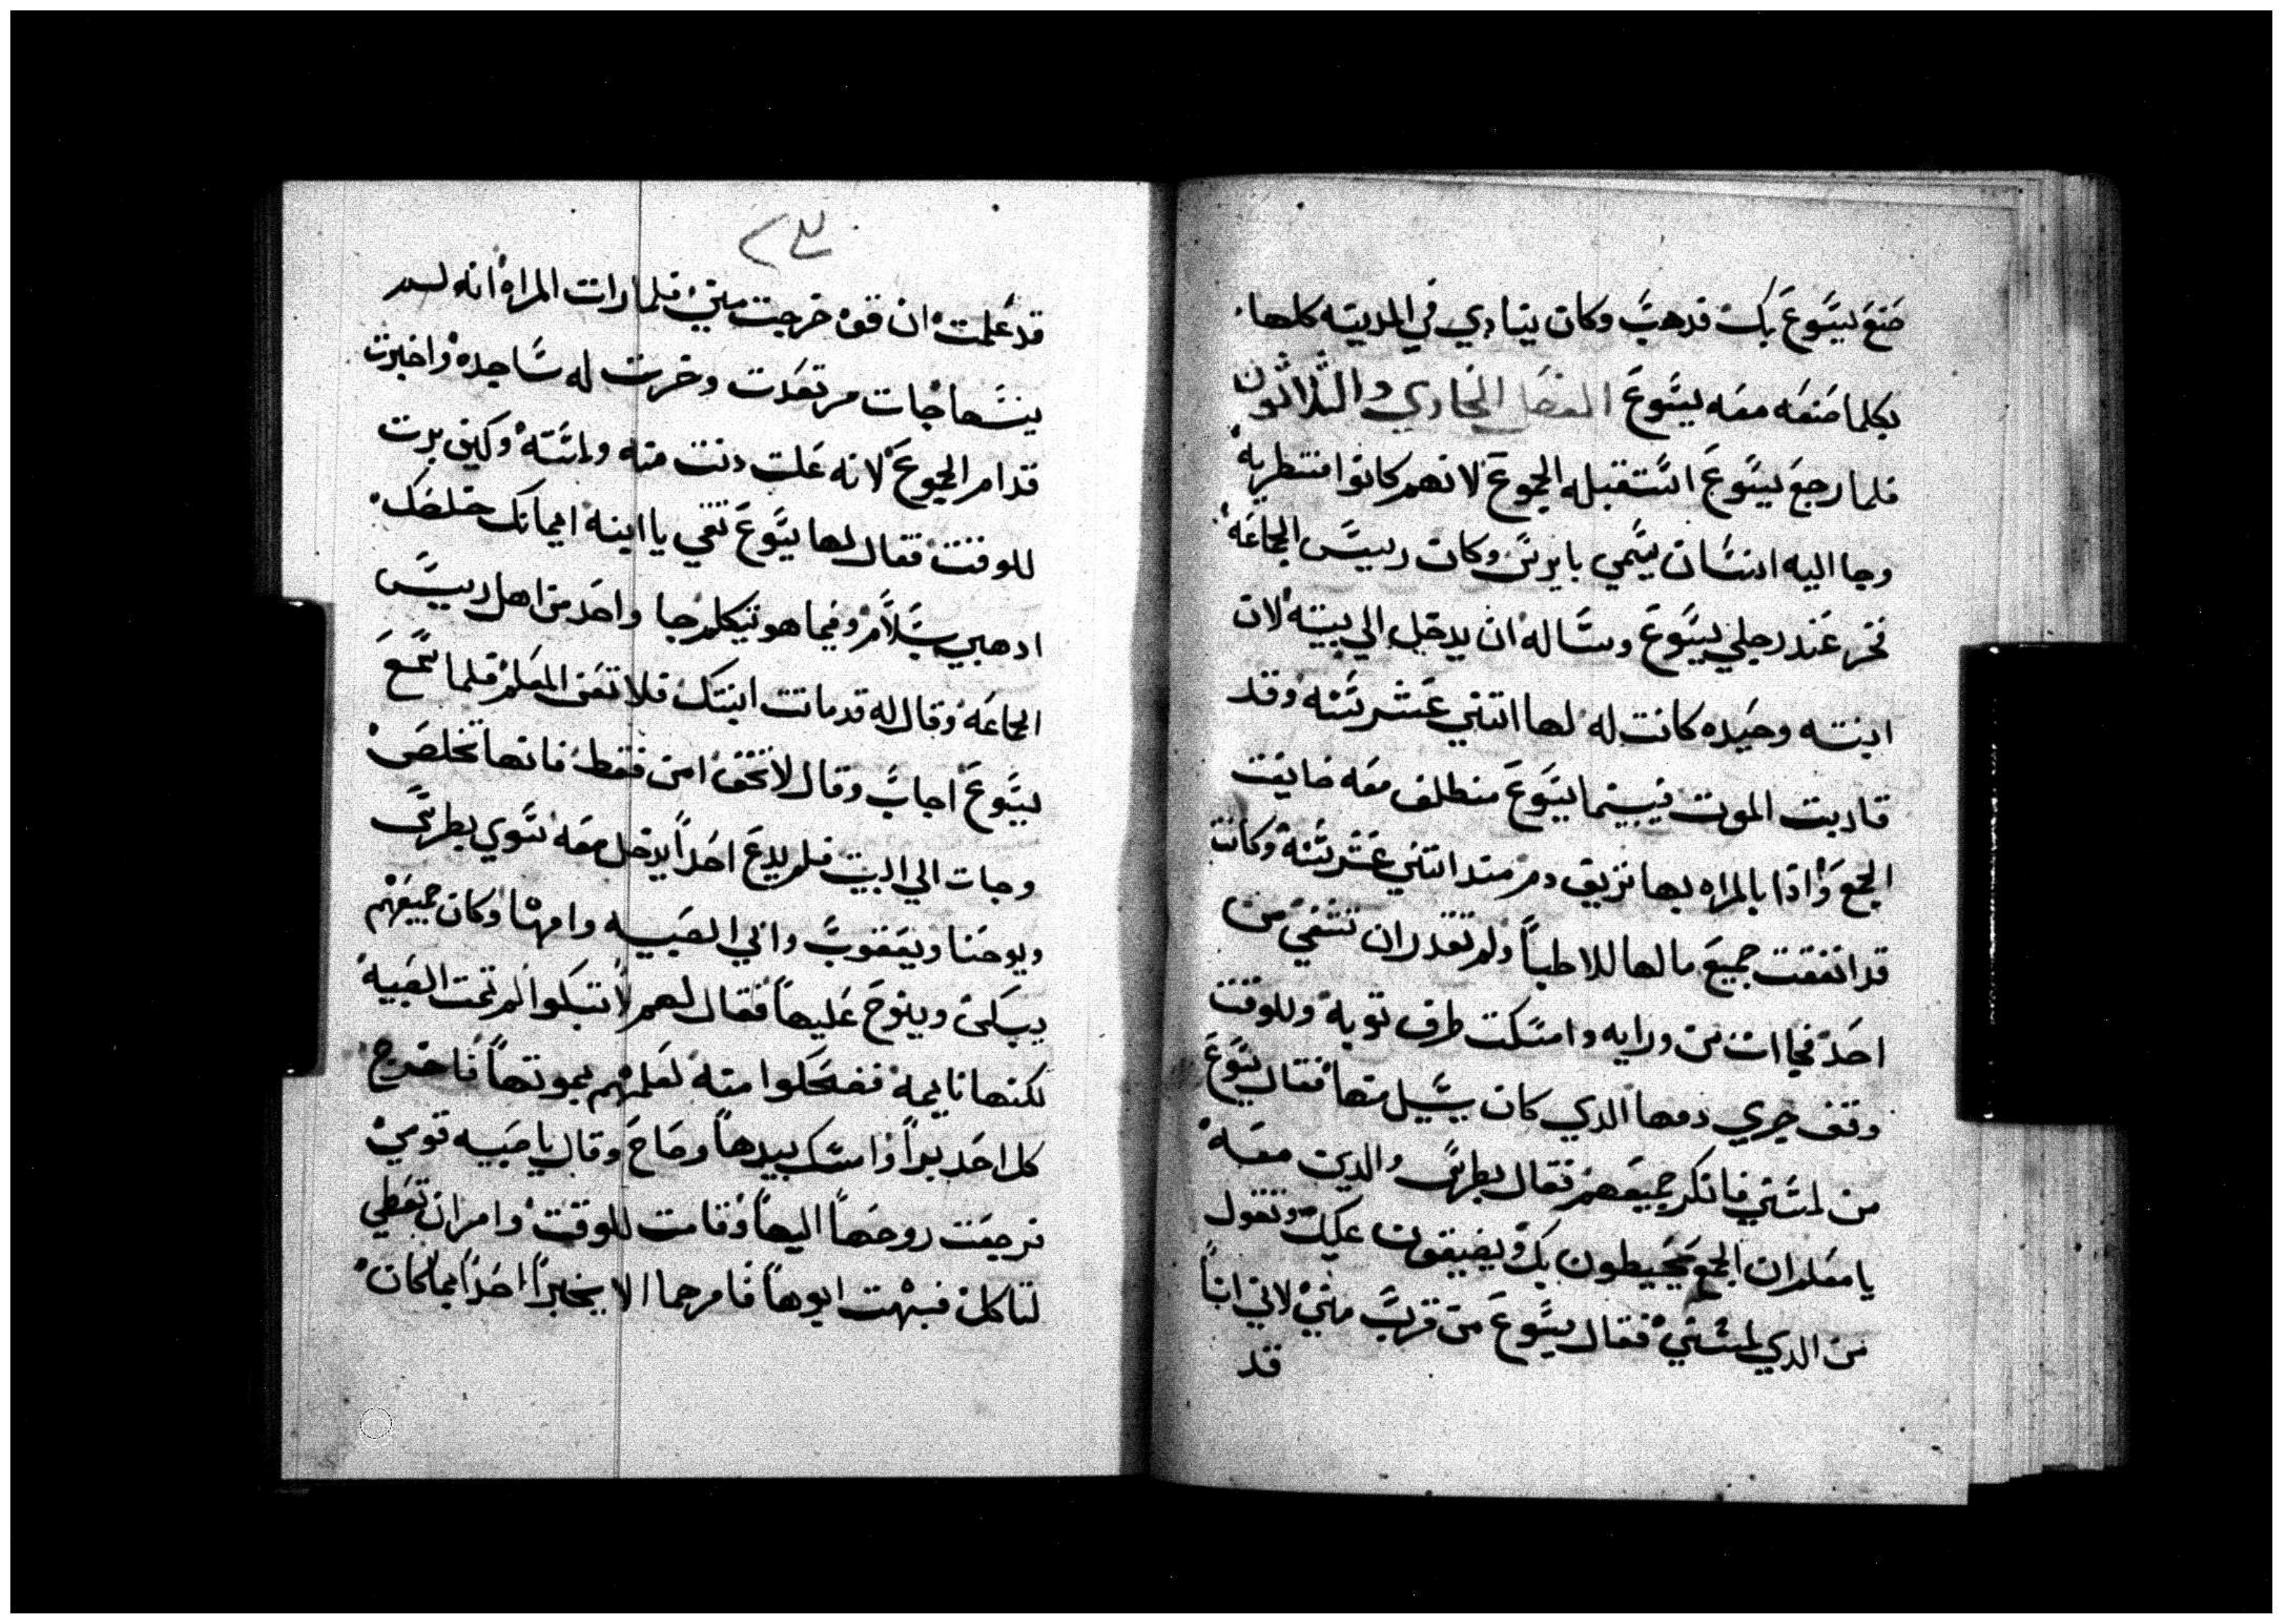 صنع يسوع بك فدهب وكان ينادي في المدينه كلها
بكلما صنعه معه يسوع الفصل الحادي والثلاثون
فلما رجع يسوع استقبله الجموع لانهم كانوا منتظريه
وجا اليه انسان يسمي يايرس وكان رييس الجماعه
فخر عند رجلي يسوع وساله ان يدخل الي بيته لان
ابنته وحيده كانت له لها اتنتي عشر سنه وقد
قاربت الموت فبينما يسوع منطلق معه ضايقت
الجمع وادا بالمراه بها نزيف دم مند اتنتي عشر سنه وكانت
قد انفقت جميع مالها للاطبا ولم تقدر ان تشفي من
احد فجاات من ورايه وامسكت طرف توبه وللوقت
وقف جري دمها الدي كان يسيل منها فقال يسوع
من لمسني فانكر جميعهم فقال بطرس والدين معه
يا معلم ان الجمع محيطون بك ويضيقون عليك وتقول
من الدي لمسني فقال يسوع من قرب مني لاني انا
قد
٢٣
قد علمت ان قوه خرجت مني فلما رات المراه انه ليس
ينساها جات مرتعدت وخرت له ساجده واخبرت
قدام الجموع لانه علت دنت منه ولمسته وكيف برت
للوقت فقال لها يسوع تقي يا ابنه ايمانك خلصك
ادهبي بسلام وفيما هو يتكلم جا واحد من اهل رييس
الجماعه وقال له قد ماتت ابنتك فلا تعن المعلم فلما سمع
يسوع اجاب وقال لا تخف امن فقط فانها تخلص
وجات الي البيت فلم يدع احداً يدخل معه سوي بطرس
ويوحنا ويعقوب وابي الصبيه وامها وكان جميعهم
يبكي وينوح عليها فقال لهم لا تبكوا لم تمت الصبيه
لكنها نايمه فضحكوا منه لعلمهم بموتها فاخرج
كل احد براً وامسك بيدها وصاح وقال يا صبيه قومي
فرجعت روحها اليها وقامت للوقت وامر ان تعطي
لتاكل فبهت ابوها فامرهما الا يخبرا احداً بما كان